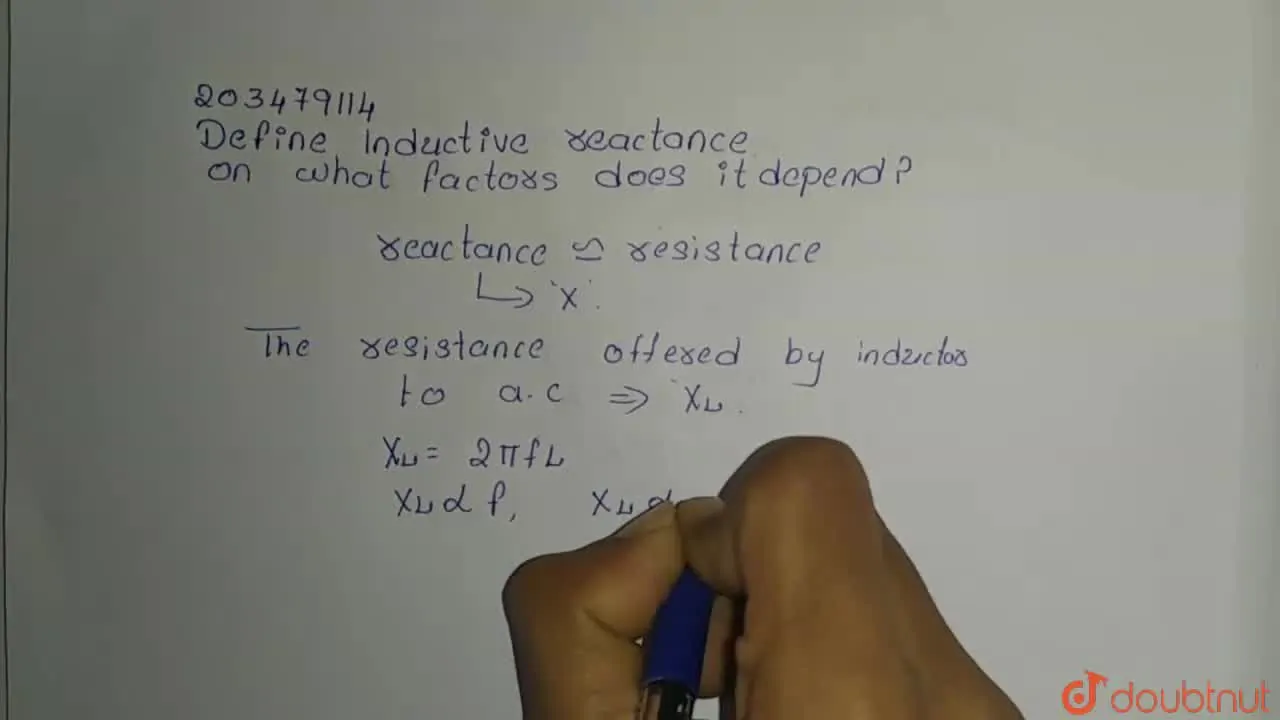 203479114
Define Inductive reactance
on what factors does it depend?
reactance ≌ resistance
↳ 'X'.
The resistance offered by inductor
to a.c ⇒ XL.
XL = 2πfL
XL α f, XL α
doubtnut